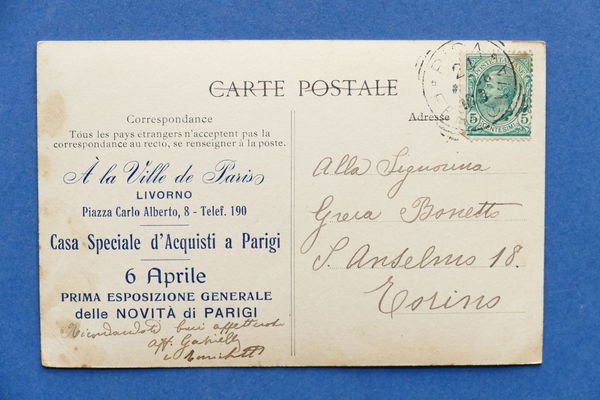 CARTE POSTALE
Correspondance
Tous les pays étrangers n'acceptent pas la
correspondance au recto, se renseigner à la poste.
Adresse
À la Ville de Paris
LIVORNO
Piazza Carlo Alberto, 8 - Telef. 190
Casa Speciale d'Acquisti a Parigi
6 Aprile
PRIMA ESPOSIZIONE GENERALE
delle NOVITÀ di PARIGI
Ricordandoti baci affettuosi
aff. Gabriella
e
POSTE ITALIANE
5 CENTESIMI 5
Alla Signorina
Bonetto
S. Anselmo 18.
Torino